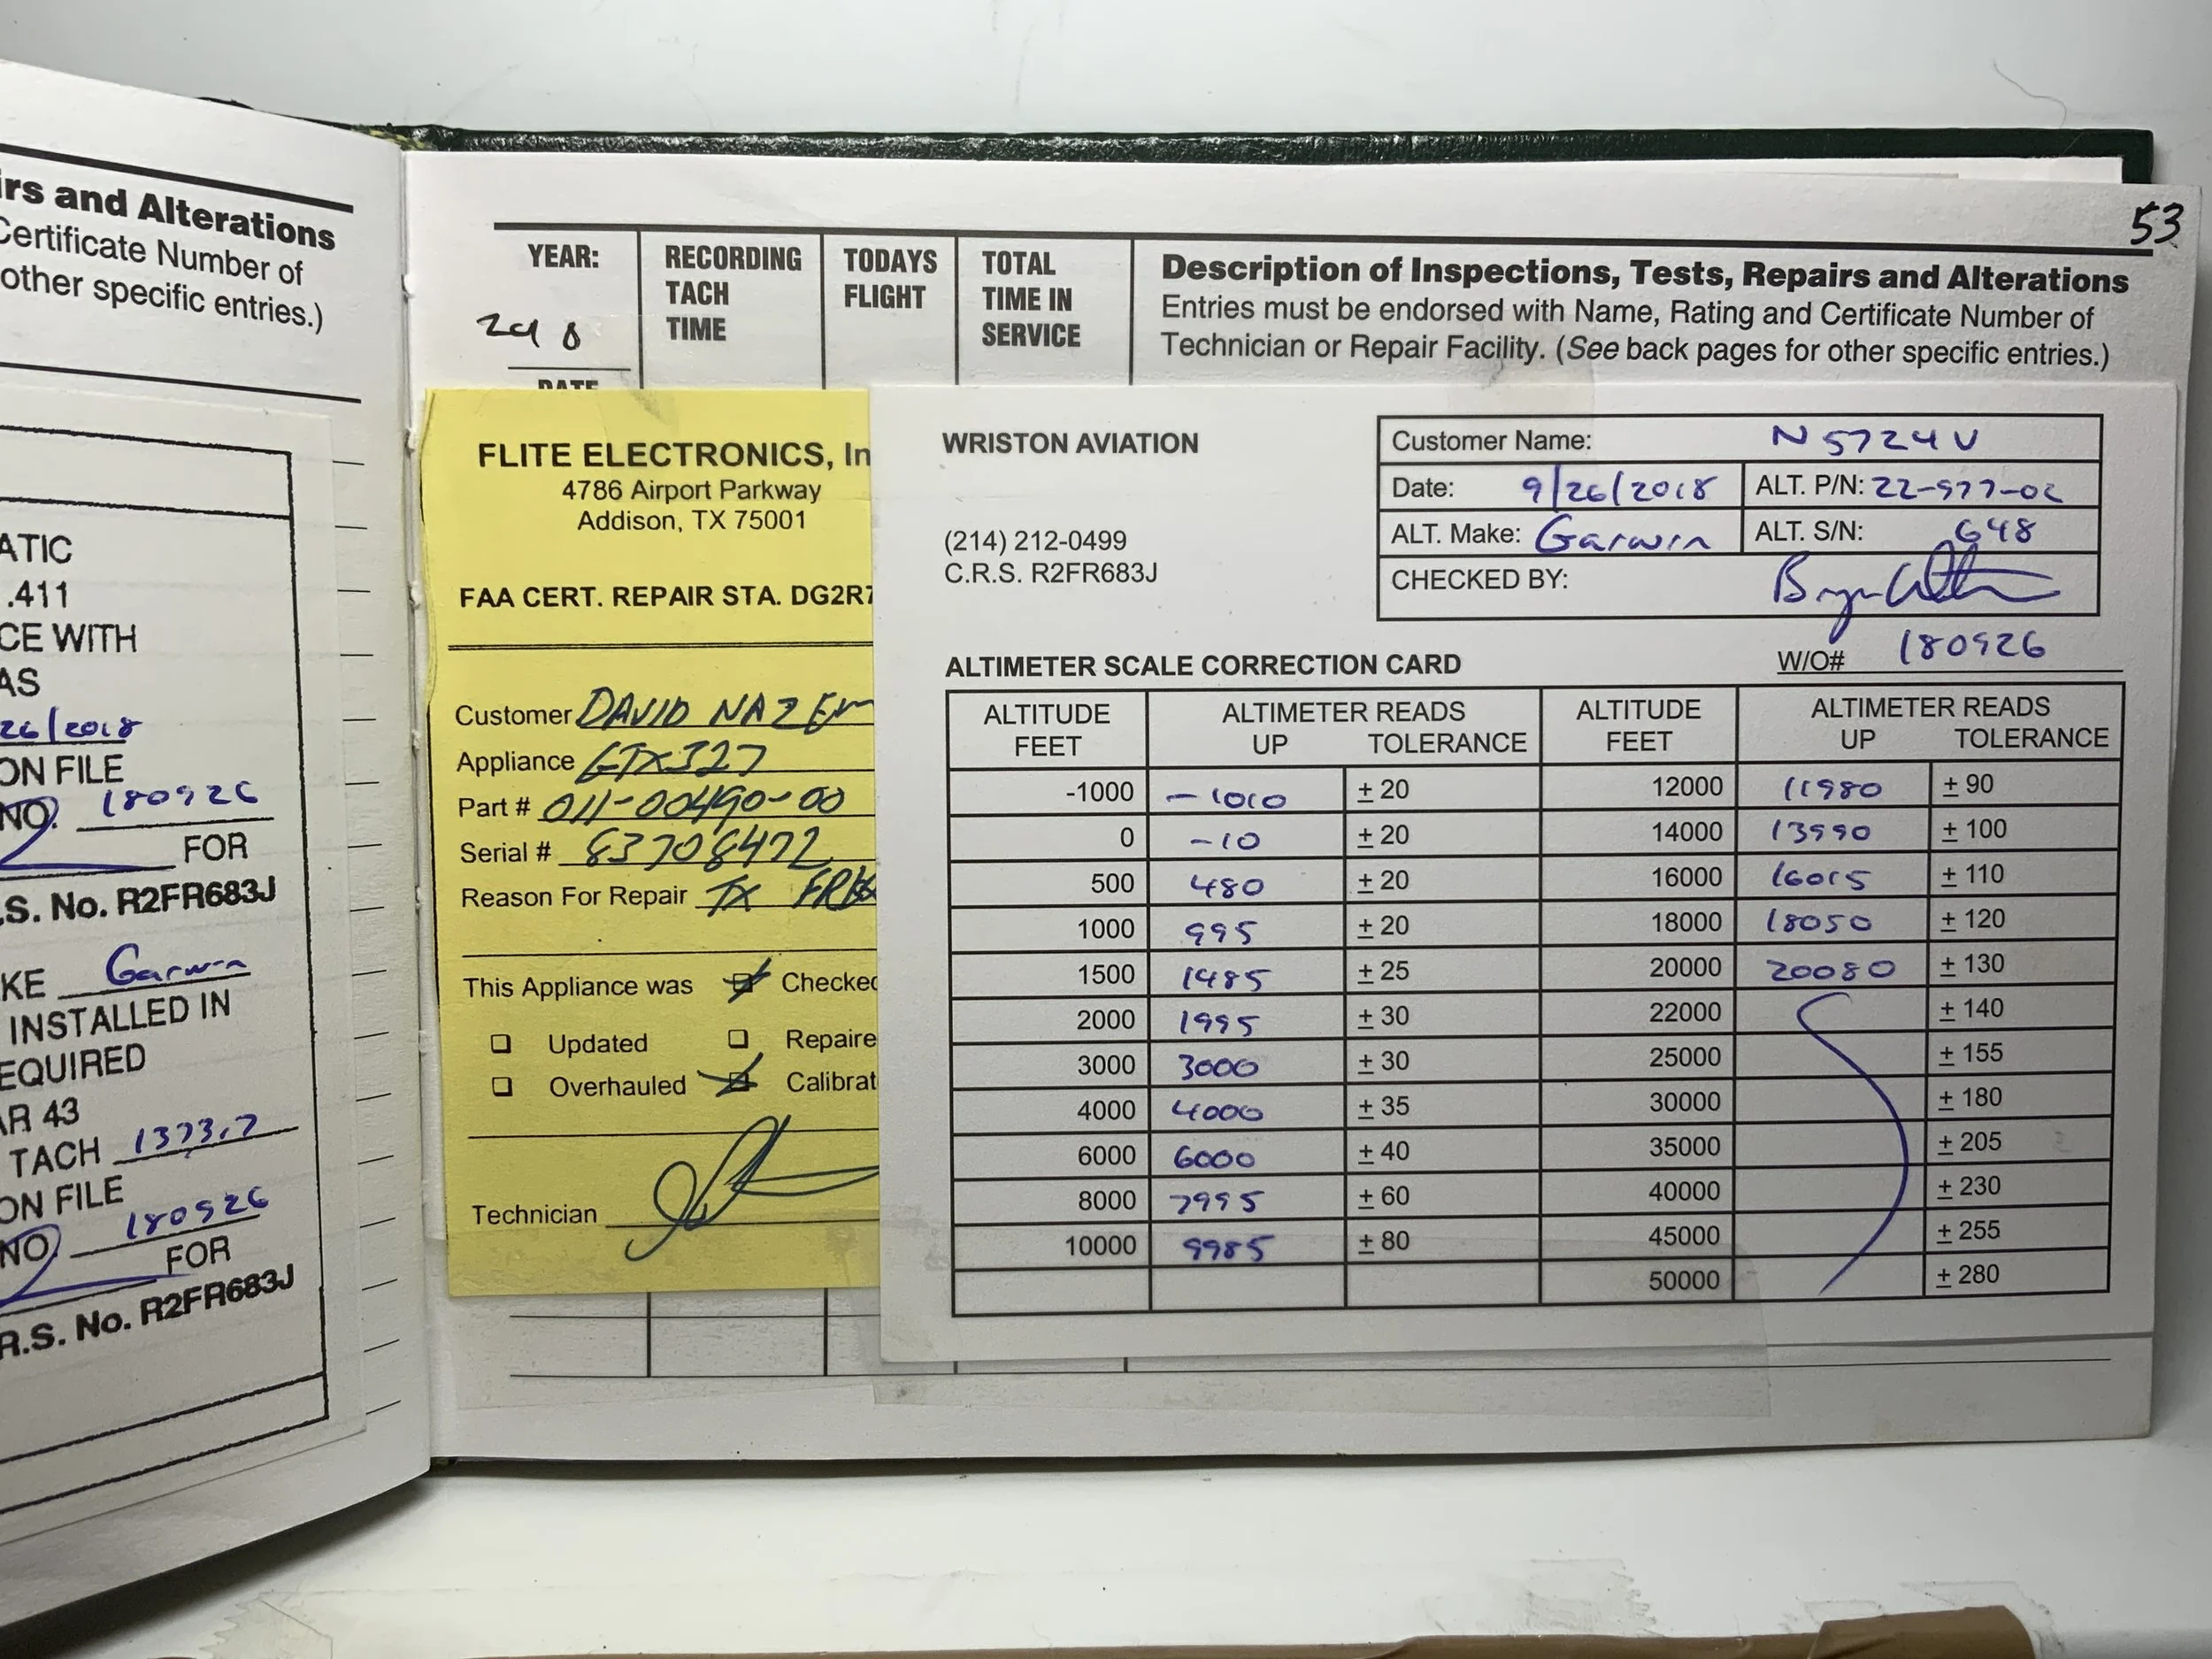 irs and Alterations
Certificate Number of
other specific entries.)
ATIC
.411
CE WITH
AS
26/2018
ON FILE
NO. 180926
FOR
.S. No. R2FR683J
KE Garwin
INSTALLED IN
EQUIRED
AR 43
TACH 1373.7
ON FILE
NO. 180926
FOR
R.S. No. R2FR683J
53
YEAR:
RECORDING
TACH
TIME
TODAYS
FLIGHT
TOTAL
TIME IN
SERVICE
Description of Inspections, Tests, Repairs and Alterations
Entries must be endorsed with Name, Rating and Certificate Number of
Technician or Repair Facility. (See back pages for other specific entries.)
DATE
FLITE ELECTRONICS, In
4786 Airport Parkway
Addison, TX 75001
FAA CERT. REPAIR STA. DG2R7
Customer DAVID NAZEM
Appliance GTX327
Part # 011-00490-00
Serial # 83708472
Reason For Repair TX FR
This Appliance was Checked
Updated Repaire
Overhauled Calibrat
Technician
WRISTON AVIATION
(214) 212-0499
C.R.S. R2FR683J
Customer Name: N5724V
Date: 9/26/2018 ALT. P/N: 22-977-02
ALT. Make: Garwin ALT. S/N: G48
CHECKED BY:
W/O# 180926
ALTIMETER SCALE CORRECTION CARD
ALTITUDE FEET ALTIMETER READS UP TOLERANCE ALTITUDE FEET ALTIMETER READS UP TOLERANCE
-1000 -1010 ± 20 12000 11980 ± 90
0 -10 ± 20 14000 13990 ± 100
500 480 ± 20 16000 16015 ± 110
1000 995 ± 20 18000 18050 ± 120
1500 1485 ± 25 20000 20080 ± 130
2000 1995 ± 30 22000 ± 140
3000 3000 ± 30 25000 ± 155
4000 4000 ± 35 30000 ± 180
6000 6000 ± 40 35000 ± 205
8000 7995 ± 60 40000 ± 230
10000 9985 ± 80 45000 ± 255
50000 ± 280